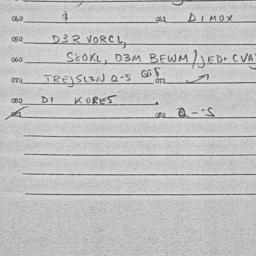 040 042 DIMOX
050 D3R VORCL,
060 S80KL, D3M BEWM/JED. CVA
070 TREJSL3N Q-S 071
080 DI KURES .
081 082 Q--S